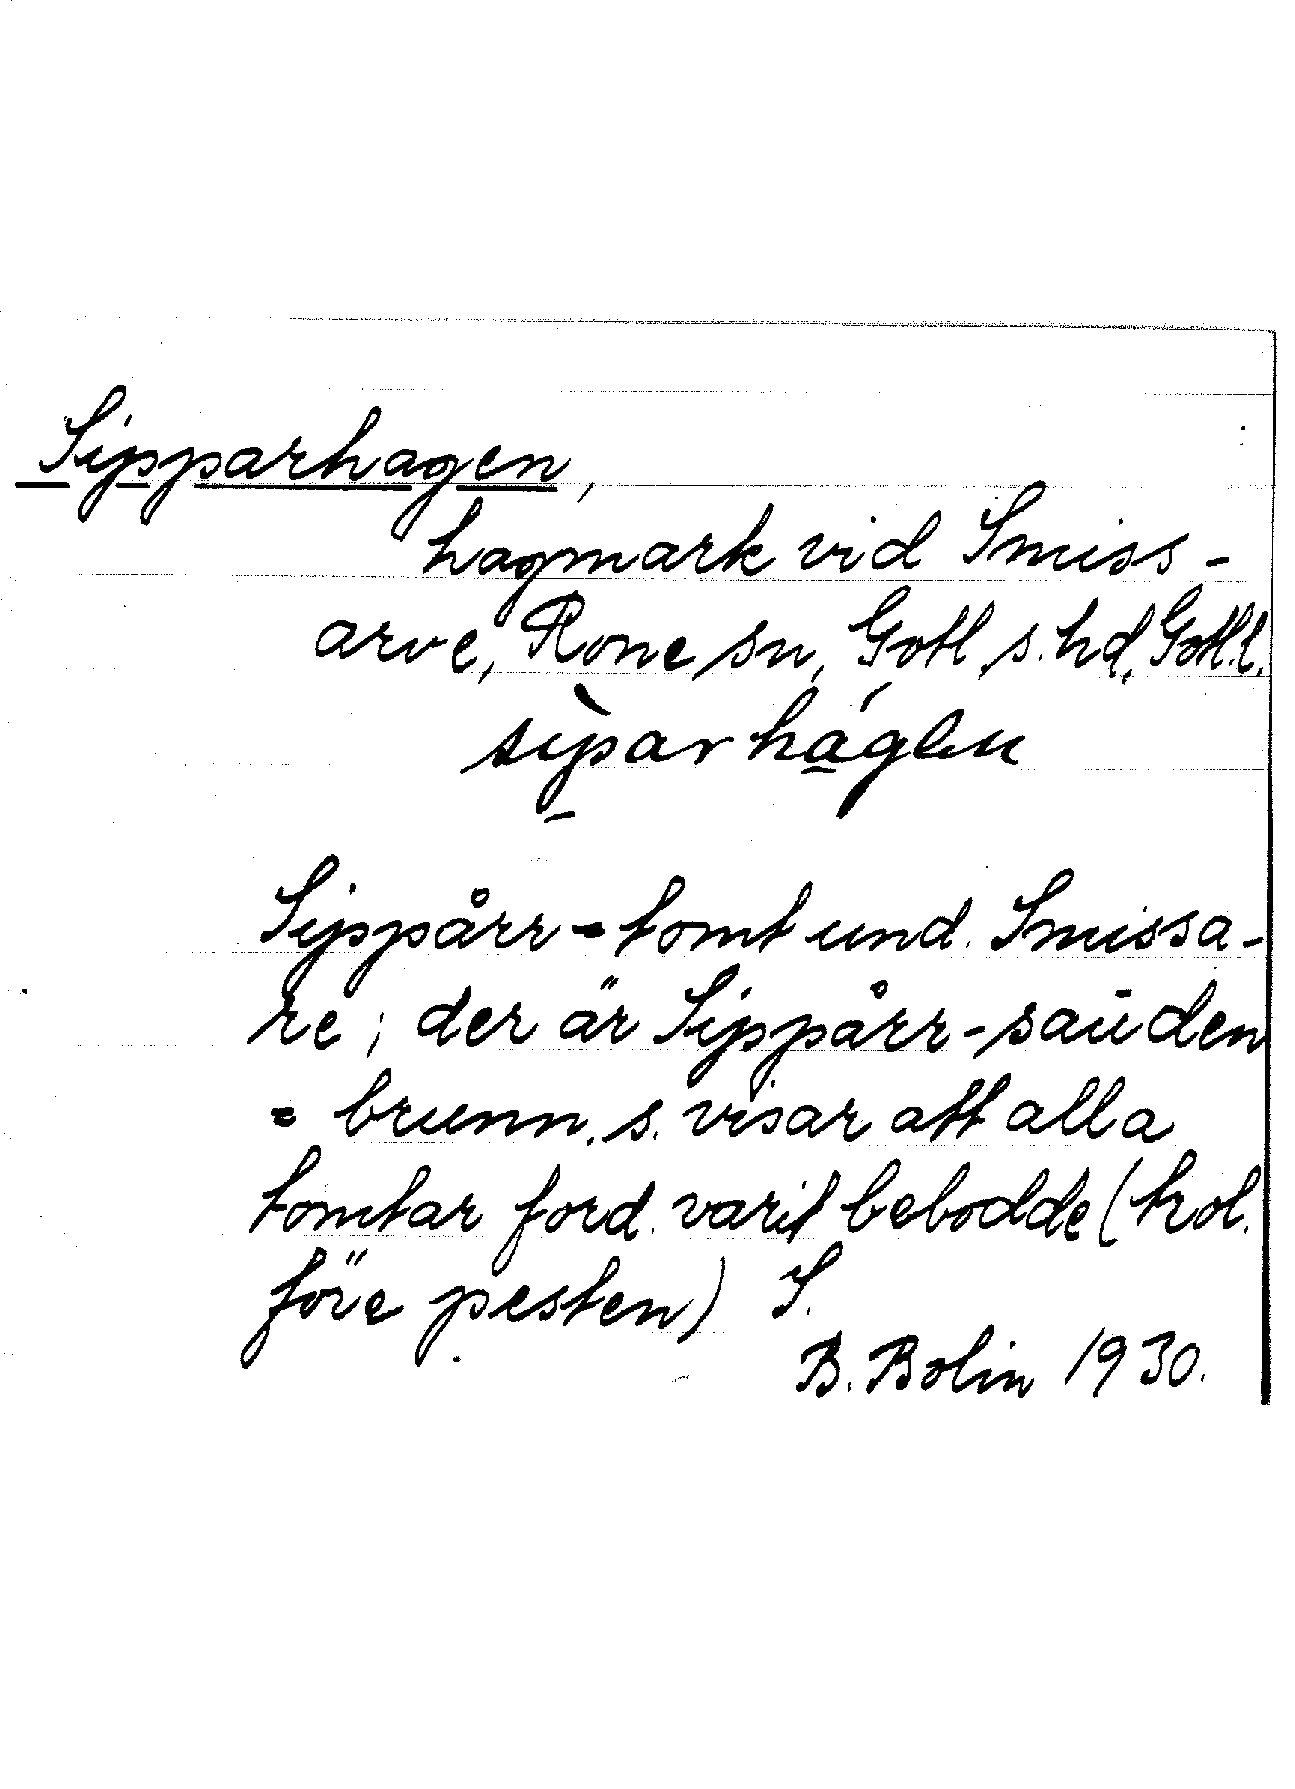 Sipparhagen,
hagmark vid Smiss-
arve, Rone sn, Gotl. s. hd, Gotl. l.
sìparhág
Sippårr-tomt und. Smissa-
re; der är Sippårr-sauden
= brunn. s. visar att alla
tomtar ford. varit bebodde (trol.
före pesten) S.
B. Bolin 1930.